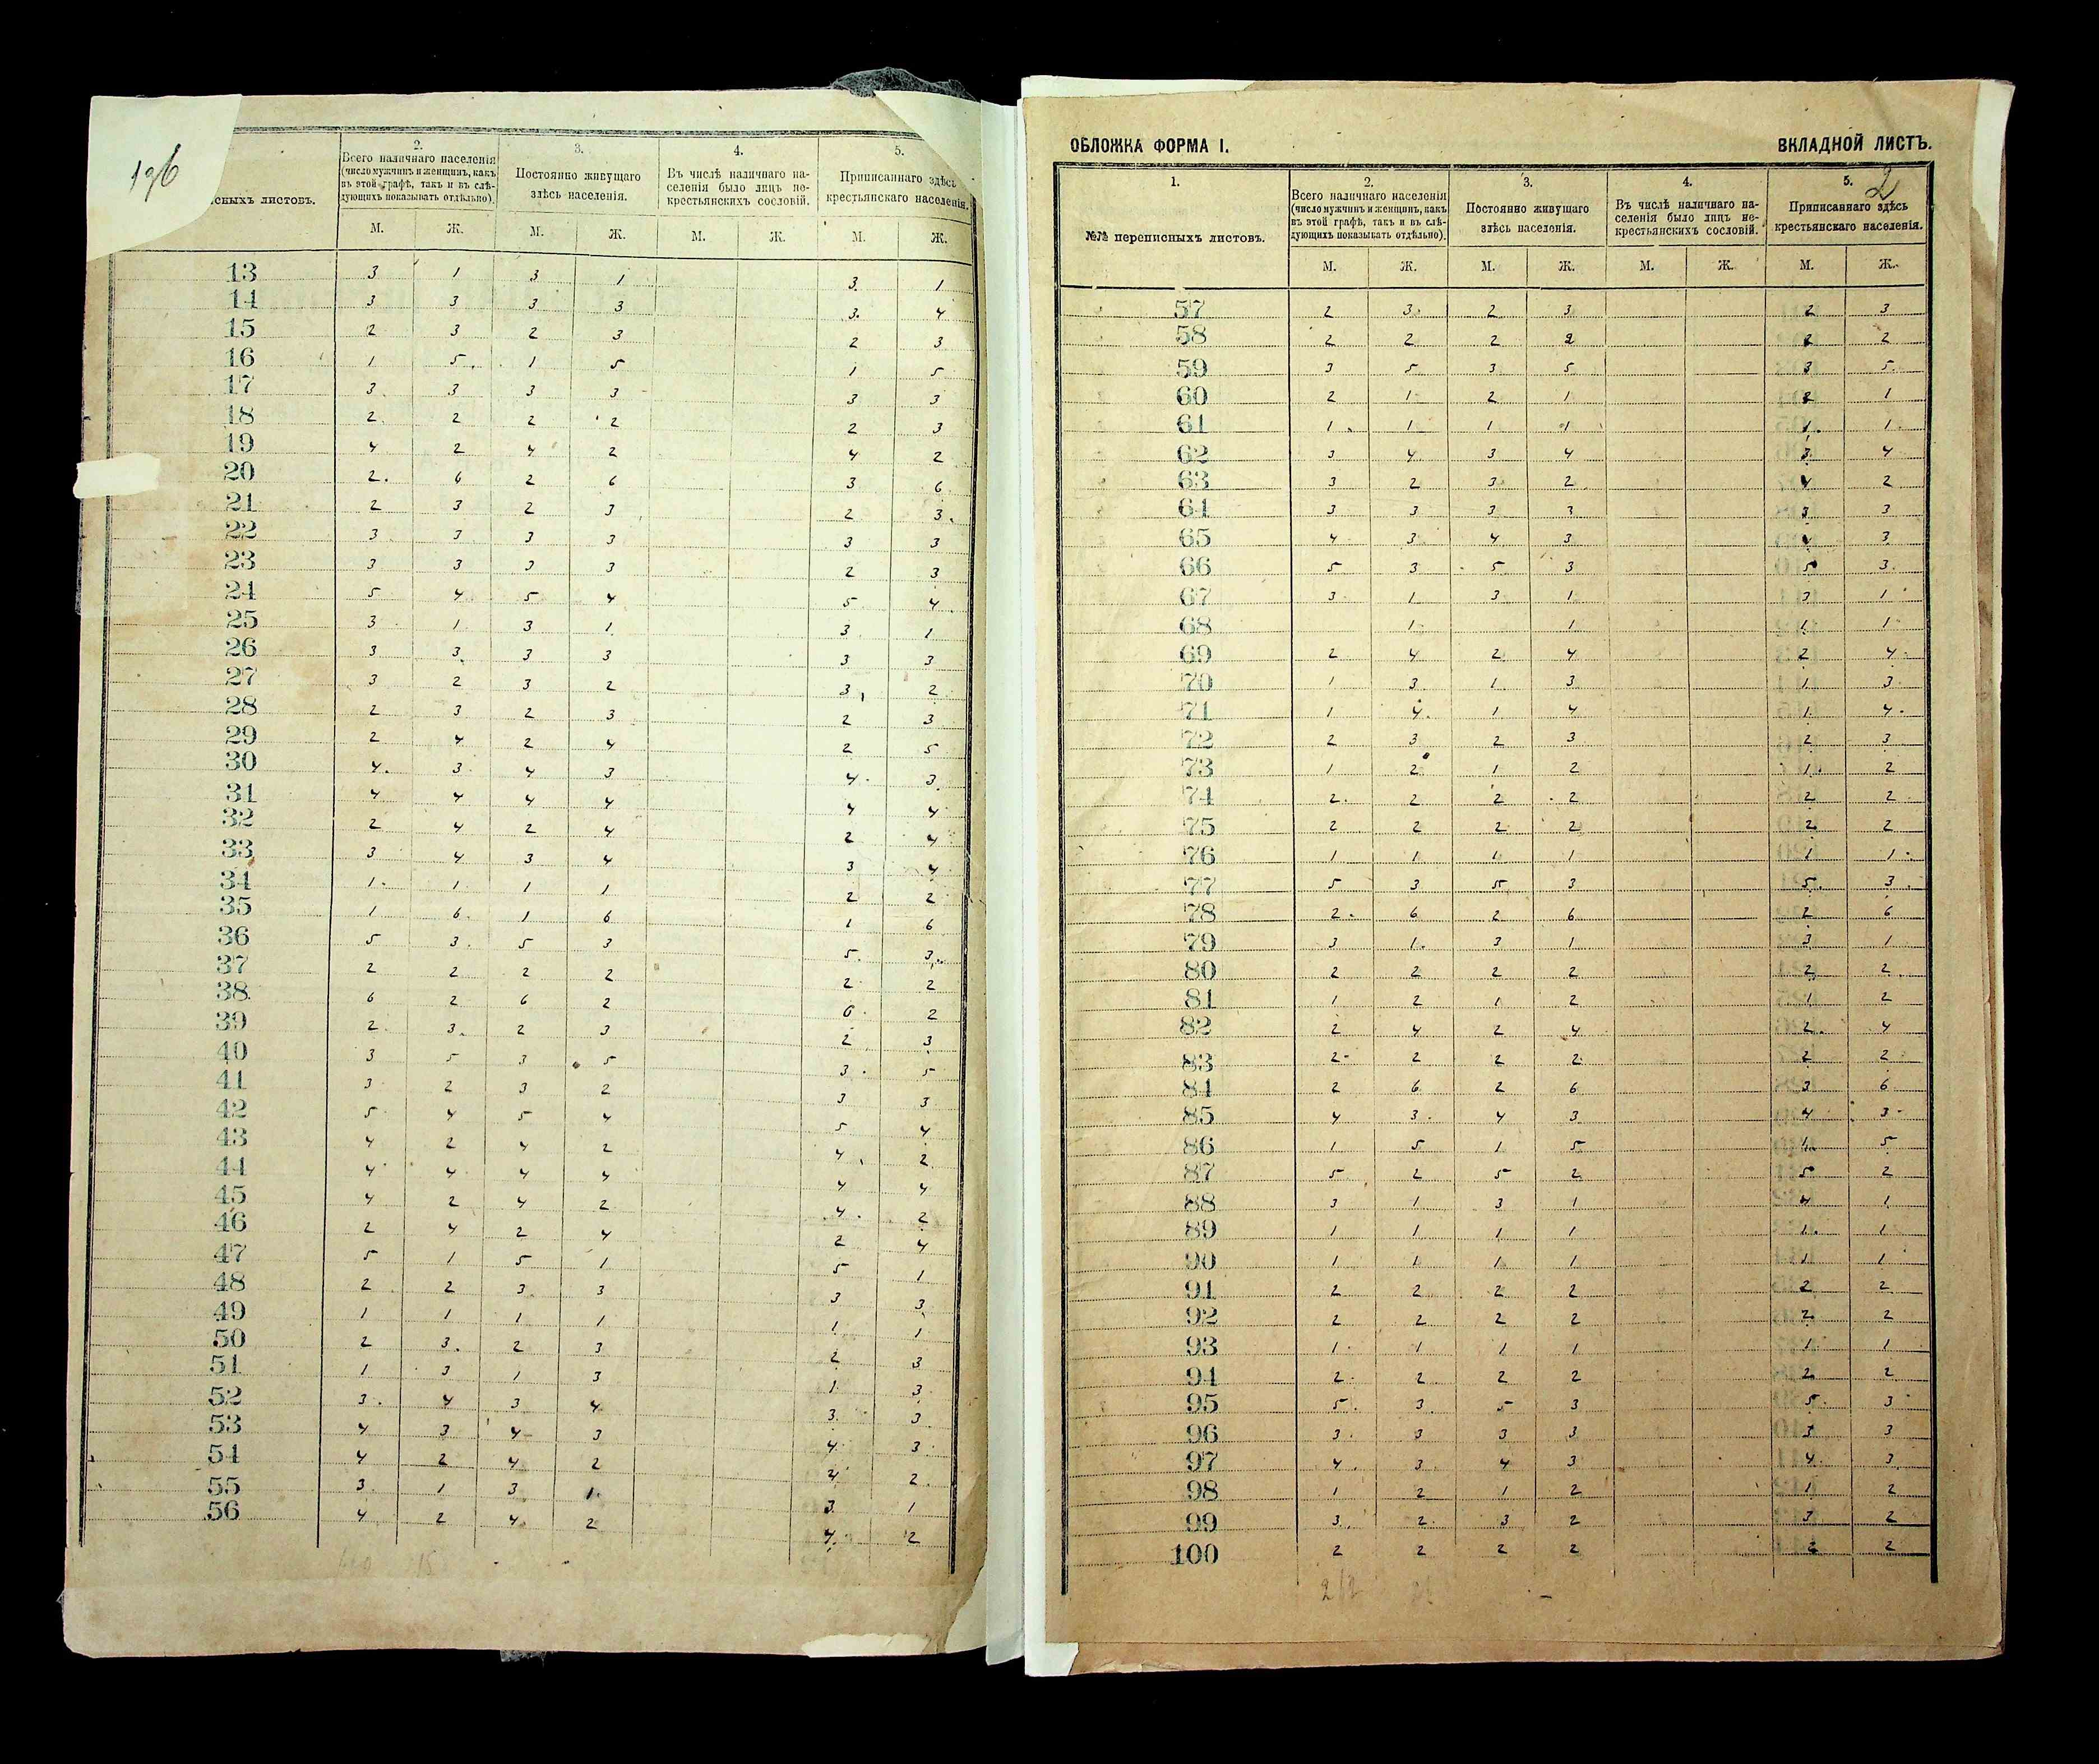 196
сныхъ листовъ.
2.
Всего наличнаго населенія
(число мужчинъ и женщинъ, какъ
въ этой графѣ, такъ и въ слѣ-
дующихъ показывать отдѣльно).
3.
Постоянно живущаго
здѣсь населенія.
4.
Въ числѣ наличнаго на-
селенія было лицъ не-
крестьянскихъ сословій.
5.
Приписаннаго здѣсь
крестьянскаго населенія.
М. Ж. М. Ж. М. Ж. М. Ж.
13 3 1 3 1 3. 1
14 3 3 3 3 3. 4
15 2 3 2 3 2 3
16 1 5. 1 5 1 5
17 3. 3 3 3 3 3
18 2. 2 2 2 2 3
19 4 2 4 2 4 2
20 2. 6 2 6 3 6
21 2 3 2 3 2 3.
22 3 3 3 3 3 3
23 3 3 3 3 2 3
24 5 4 5 4 5 4.
25 3 1 3 1 3 1
26 3 3. 3 3 3 3
27 3 2 3 2 3 2
28 2 3 2 3 2 3
29 2 4 2 4 2 5
30 4. 3 4 3 4. 3
31 4 4 4 4 4 4
32 2 4 2 4 2 4
33 3 4 3 4 3 4
34 1. 1 1 1 2 2
35 1 6. 1 6 1 6
36 5 3. 5 3 5. 3.
37 2 2 2 2 2. 2
38 6 2 6 2 6. 2
39 2. 3. 2 3 2 3
40 3 5 3 5 3. 5
41 3 2 3 2 3 3
42 5 4 5 4 5 4
43 4 2 4 2 4 2
44 4 4 4 4 4 4
45 4 2 4 2 4. 2
46 2 4 2 4 2 4
47 5 1 5 1 5 1
48 2 2 3 3 3 3
49 1 1 1 1 1 1
50 2 3. 2 3 2 3
51 1 3 1 3 1 3
52 3. 4 3 4 3. 3
53 4 3 4 3 4 3
54 4 2 4 2 4 2.
55 3. 1 3 1. 3 1
56 4 2 4 2 4. 2
ОБЛОЖКА ФОРМА I.
ВКЛАДНОЙ ЛИСТЪ.
2
1.
№№ переписныхъ листовъ.
2.
Всего наличнаго населенія
(число мужчинъ и женщинъ, какъ
въ этой графѣ, такъ и въ слѣ-
дующихъ показывать отдѣльно).
3.
Постоянно живущаго
здѣсь населенія.
4.
Въ числѣ наличнаго на-
селенія было лицъ не-
крестьянскихъ сословій.
5.
Приписаннаго здѣсь
крестьянскаго населенія.
М. Ж. М. Ж. М. Ж. М. Ж.
57 2 3. 2 3 2 3
58 2 2 2 2 2 2
59 3 5 3 5 3 5
60 2 1 2 1 2 1
61 1. 1 1 1 1. 1.
62 3 4 3 4 3 4
63 3 2 3 2 4 2
64 3 3 3 3 3 3
65 4 3 4 3 4 3
66 5 3 5 3 5 3
67 3 1 3 1 3 1
68 1 1 1 1
69 2 4 2 4 2 4
70 1 3. 1 3 1 3
71 1 4. 1 4 1 4.
72 2 3 2 3 2 3
73 1 2 1 2 1. 2
74 2. 2 2 2 2 2
75 2 2 2 2 2 2
76 1 1 1 1 1 1.
77 5 3 5 3 5. 3.
78 2. 6 2 6 2 6
79 3 1. 3 1 3 1
80 2 2 2 2 2 2.
81 1 2 1 2 1 2
82 2 4 2 4 2. 4
83 2- 2 2 2 2 2
84 2 6 2 6 3 6
85 4 3. 4 3 4 3
86 1 5 1 5 1. 5
87 5 2 5 2 5 2
88 3 1 3 1 4 1
89 1 1 1 1 1. 1
90 1 1 1 1 1 1
91 2 2 2 2 2 2
92 2 2 2 2 2 2
93 1. 1 1 1 1 1
94 2. 2 2 2 2 2
95 5. 3. 5 3 5. 3
96 3. 3 3 3 3 3
97 4. 3 4 3 4. 3
98 1 2 1 2 1 2
99 3. 2. 3 2 3 2
100 2 2 2 2 2 2
212